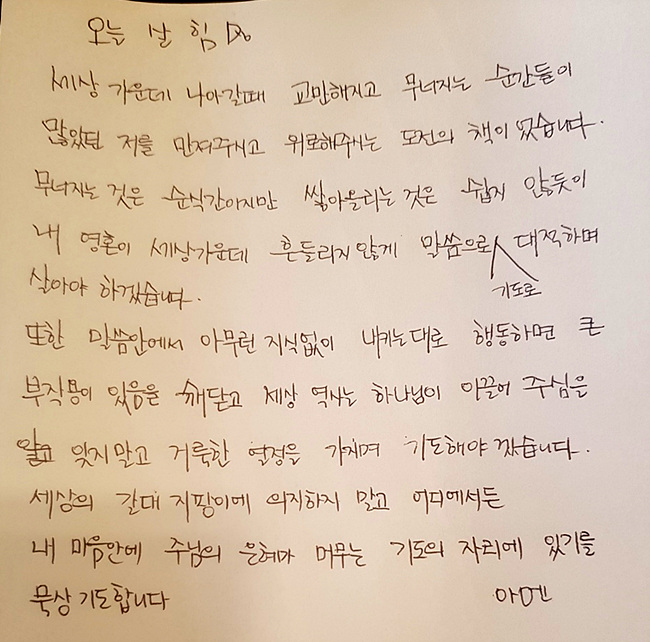 오늘 날 힘 Do
세상 가운데 나아갈때 교만해지고 무너지는 순간들이
많았던 저를 만져주시고 위로해주시는 도전의 책이 였습니다.
무너지는 것은 순식간이지만 쌓아올리는 것은 쉽지 않듯이
내 영혼이 세상가운데 흔들리지않게 말씀으로 대적하며
기도로
살아야 하겠습니다.
또한 말씀안에서 아무런 지식없이 내키는대로 행동하면 큰
부작용이 있음을 깨닫고 세상 역사는 하나님이 이끌어 주심을
알고 잊지말고 거룩한 열정을 가지며 기도해야 겠습니다.
세상의 갈대 지팡이에 의지하지 말고 어디에서든
내 마음안에 주님의 은혜가 머무는 기도의 자리에 있기를
묵상 기도합니다 아멘